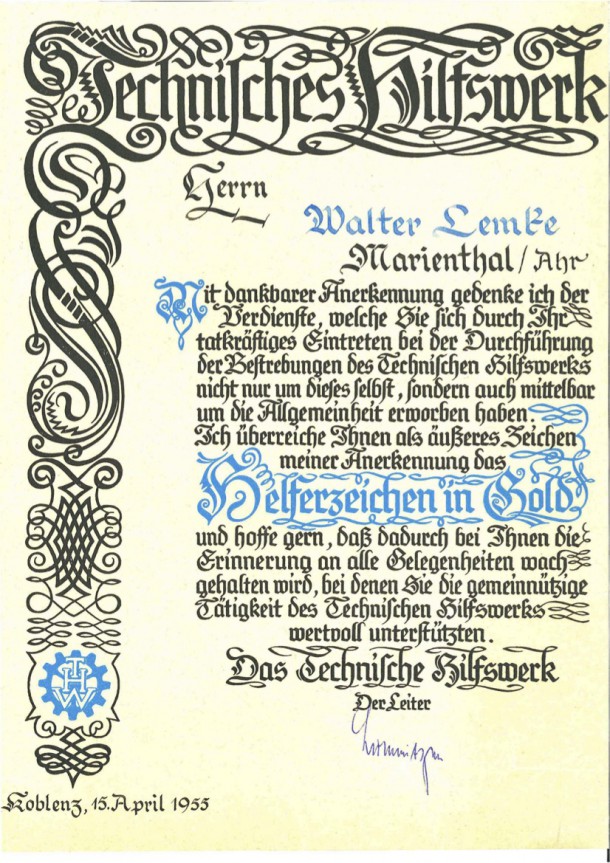 Technisches Hilfswerk
Herrn
Walter Lemke
Marienthal/Ahr
Mit dankbarer Anerkennung gedenke ich der
Verdienste, welche Sie sich durch Ihr
tatkräftiges Eintreten bei der Durchführung
der Bestrebungen des Technischen Hilfswerks
nicht nur um dieses selbst, sondern auch mittelbar
um die Allgemeinheit erworben haben.
Ich überreiche Ihnen als äußeres Zeichen
meiner Anerkennung das
Helferzeichen in Gold
und hoffe gern, daß dadurch bei Ihnen die
Erinnerung an alle Gelegenheiten wach
gehalten wird, bei denen Sie die gemeinnützige
Tätigkeit des Technischen Hilfswerks
wertvoll unterstützten.
Das Technische Hilfswerk
Der Leiter
THW
Koblenz, 15. April 1955